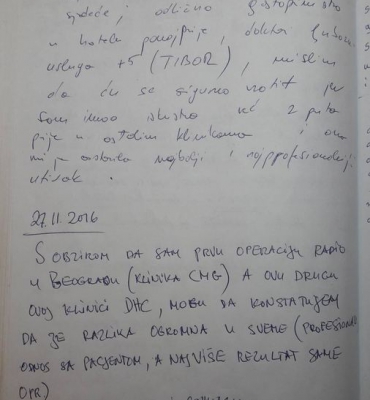 sjedeće, odlično gostoprimstvo
u hotelu, doktor ljubazan
usluga +5 (TIBOR), mislim
da ću se sigurno vratit jer
sam imao iskustva već 2 puta
prije u ostalim klinikama i ova
mi je ostavila najbolji i najprofesionalniji
utisak.
27.11.2016
S OBZIROM DA SAM PRVU OPERACIJU RADIO
U BEOGRADU (KLINIKA CMG) A OVU DRUGU
OVOJ KLINICI DHC, MOGU DA KONSTATUJEM
DA JE RAZLIKA OGROMNA U SVEMU (PROFESIONALAN
ODNOS SA PACJENTOM, A NAJVIŠE REZULTAT SAME
OPR)